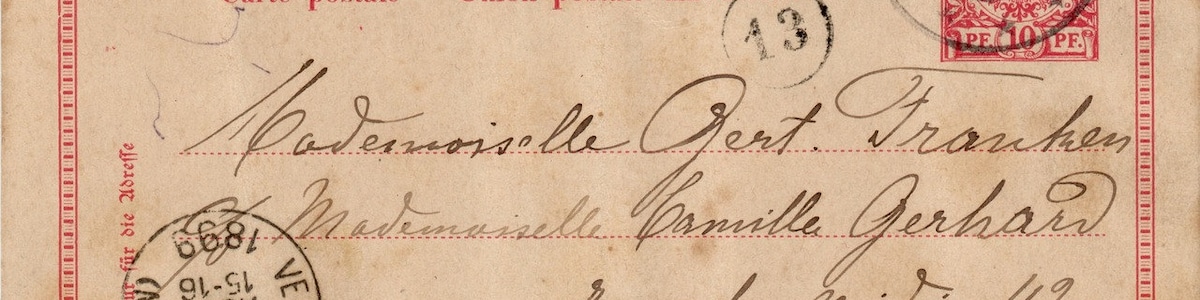 Carte postale
13
PF. 10 PF.
Mademoiselle Gert. Franken
c/o Mademoiselle Camilla Gerhard
für die Adresse
1899
15-16
VE